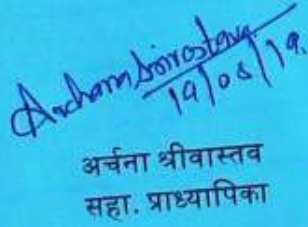 Archana Srivastava
19/08/19.
अर्चना श्रीवास्तव
सहा. प्राध्यापिका